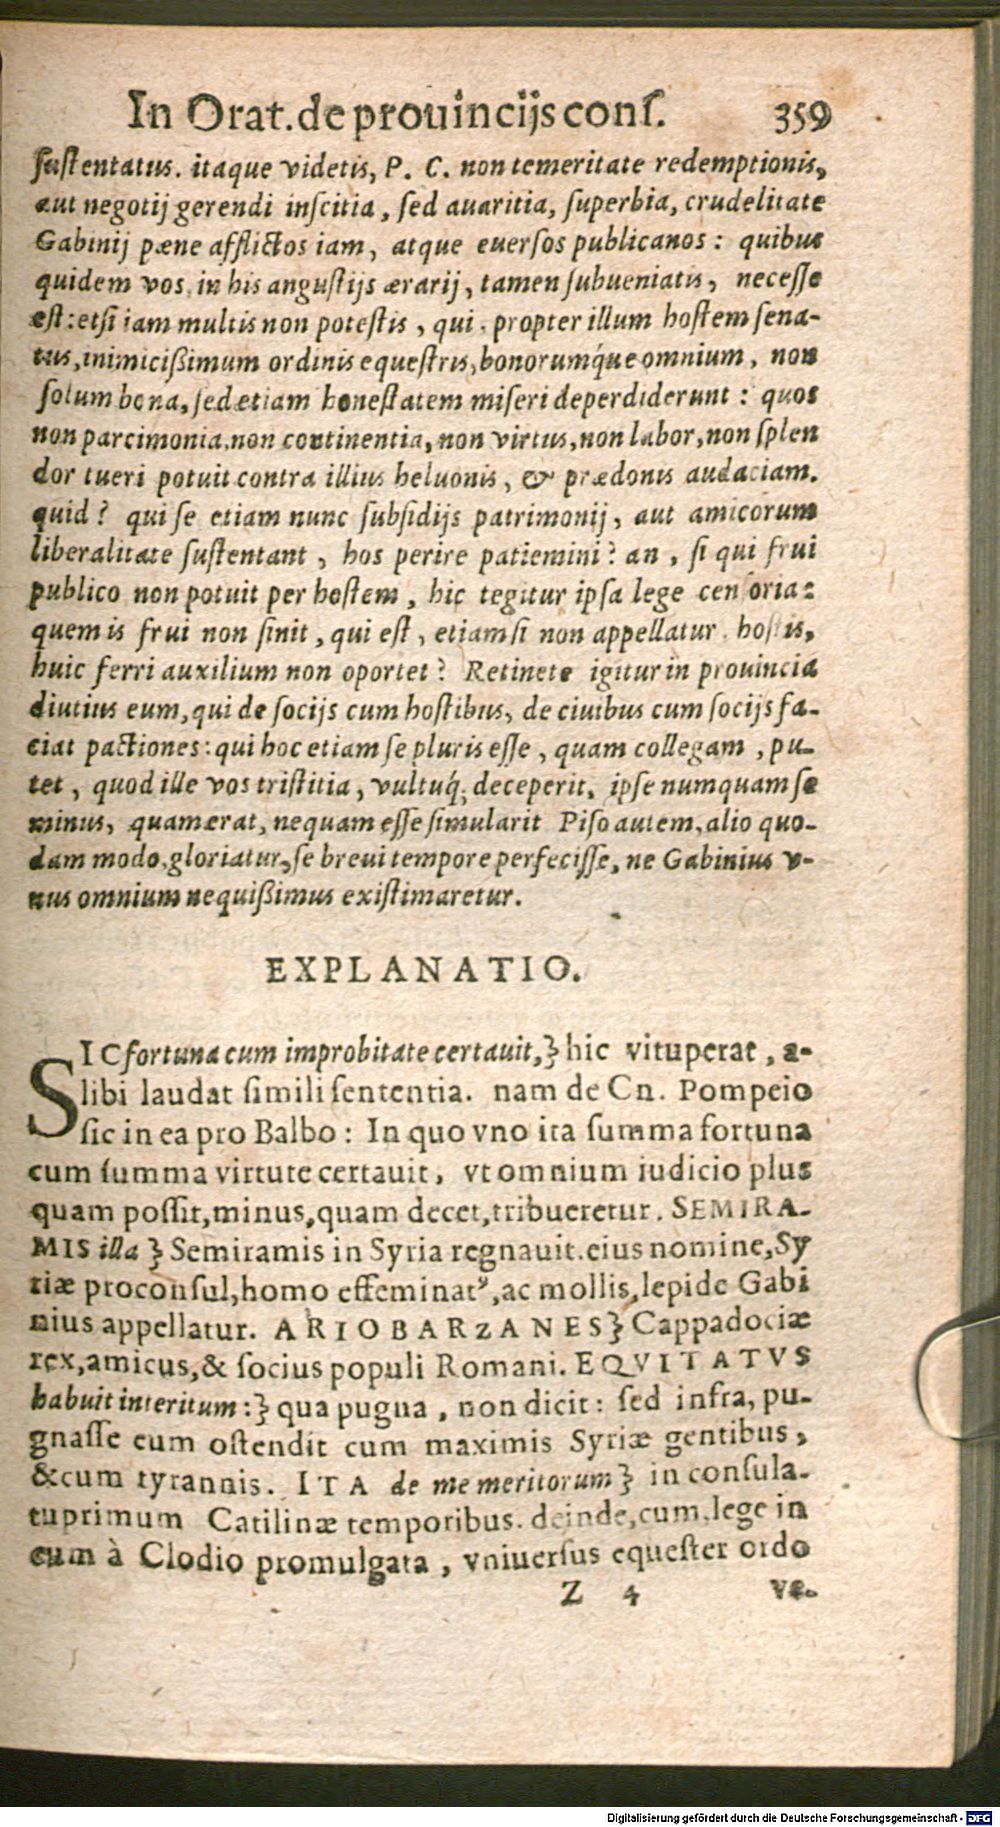 In Orat. de prouincijs conſ. 359
ſuſtentatus. itaque videtis, P. C. non temeritate redemptionis,
aut negotij gerendi inſcitia, ſed auaritia, ſuperbia, crudelitate
Gabinij pæne afflictos iam, atque euerſos publicanos: quibus
quidem vos in his anguſtijs ærarij, tamen ſubueniatis, neceſſe
eſt: etſi iam multis non poteſtis, qui propter illum hoſtem ſena-
tus, inimicißimum ordinis equeſtris, bonorumq́ue omnium, non
ſolum bona, ſed etiam honeſtatem miſeri deperdiderunt: quos
non parcimonia, non continentia, non virtus, non labor, non ſplen
dor tueri potuit contra illius heluonis, & prædonis audaciam.
quid? qui ſe etiam nunc ſubſidijs patrimonij, aut amicorum
liberalitate ſuſtentant, hos perire patiemini? an, ſi qui frui
publico non potuit per hoſtem, hic tegitur ipſa lege cenſoria:
quem is frui non ſinit, qui eſt, etiamſi non appellatur hoſtis,
huic ferri auxilium non oportet? Retinete igitur in prouincia
diutius eum, qui de ſocijs cum hoſtibus, de ciuibus cum ſocijs fa-
ciat pactiones: qui hoc etiam ſe pluris eſſe, quam collegam, pu-
tet, quod ille vos triſtitia, vultuq́; deceperit, ipſe numquam ſe
minus, quam erat, nequam eſſe ſimularit Piſo autem, alio quo-
dam modo, gloriatur, ſe breui tempore perfeciſſe, ne Gabinius v-
nus omnium nequißimus exiſtimaretur.
EXPLANATIO.
SIC fortuna cum improbitate certauit,} hic vituperat, a-
libi laudat ſimili ſententia. nam de Cn. Pompeio
ſic in ea pro Balbo: In quo vno ita ſumma fortuna
cum ſumma virtute certauit, vt omnium iudicio plus
quam poſſit, minus, quam decet, tribueretur. SEMIRA-
MIS illa} Semiramis in Syria regnauit. eius nomine, Sy
riæ proconſul, homo effeminatꝰ, ac mollis, lepide Gabi
nius appellatur. ARIOBARZANES} Cappadociæ
rex, amicus, & ſocius populi Romani. EQVITATVS
habuit interitum:} qua pugna, non dicit: ſed infra, pu-
gnaſſe eum oſtendit cum maximis Syriæ gentibus,
& cum tyrannis. ITA de me meritorum} in conſula-
tu primum Catilinæ temporibus. deinde, cum, lege in
eum à Clodio promulgata, vniuerſus equeſter ordo
Z 4 ve-
Digitalisierung gefördert durch die Deutsche Forschungsgemeinschaft - DFG